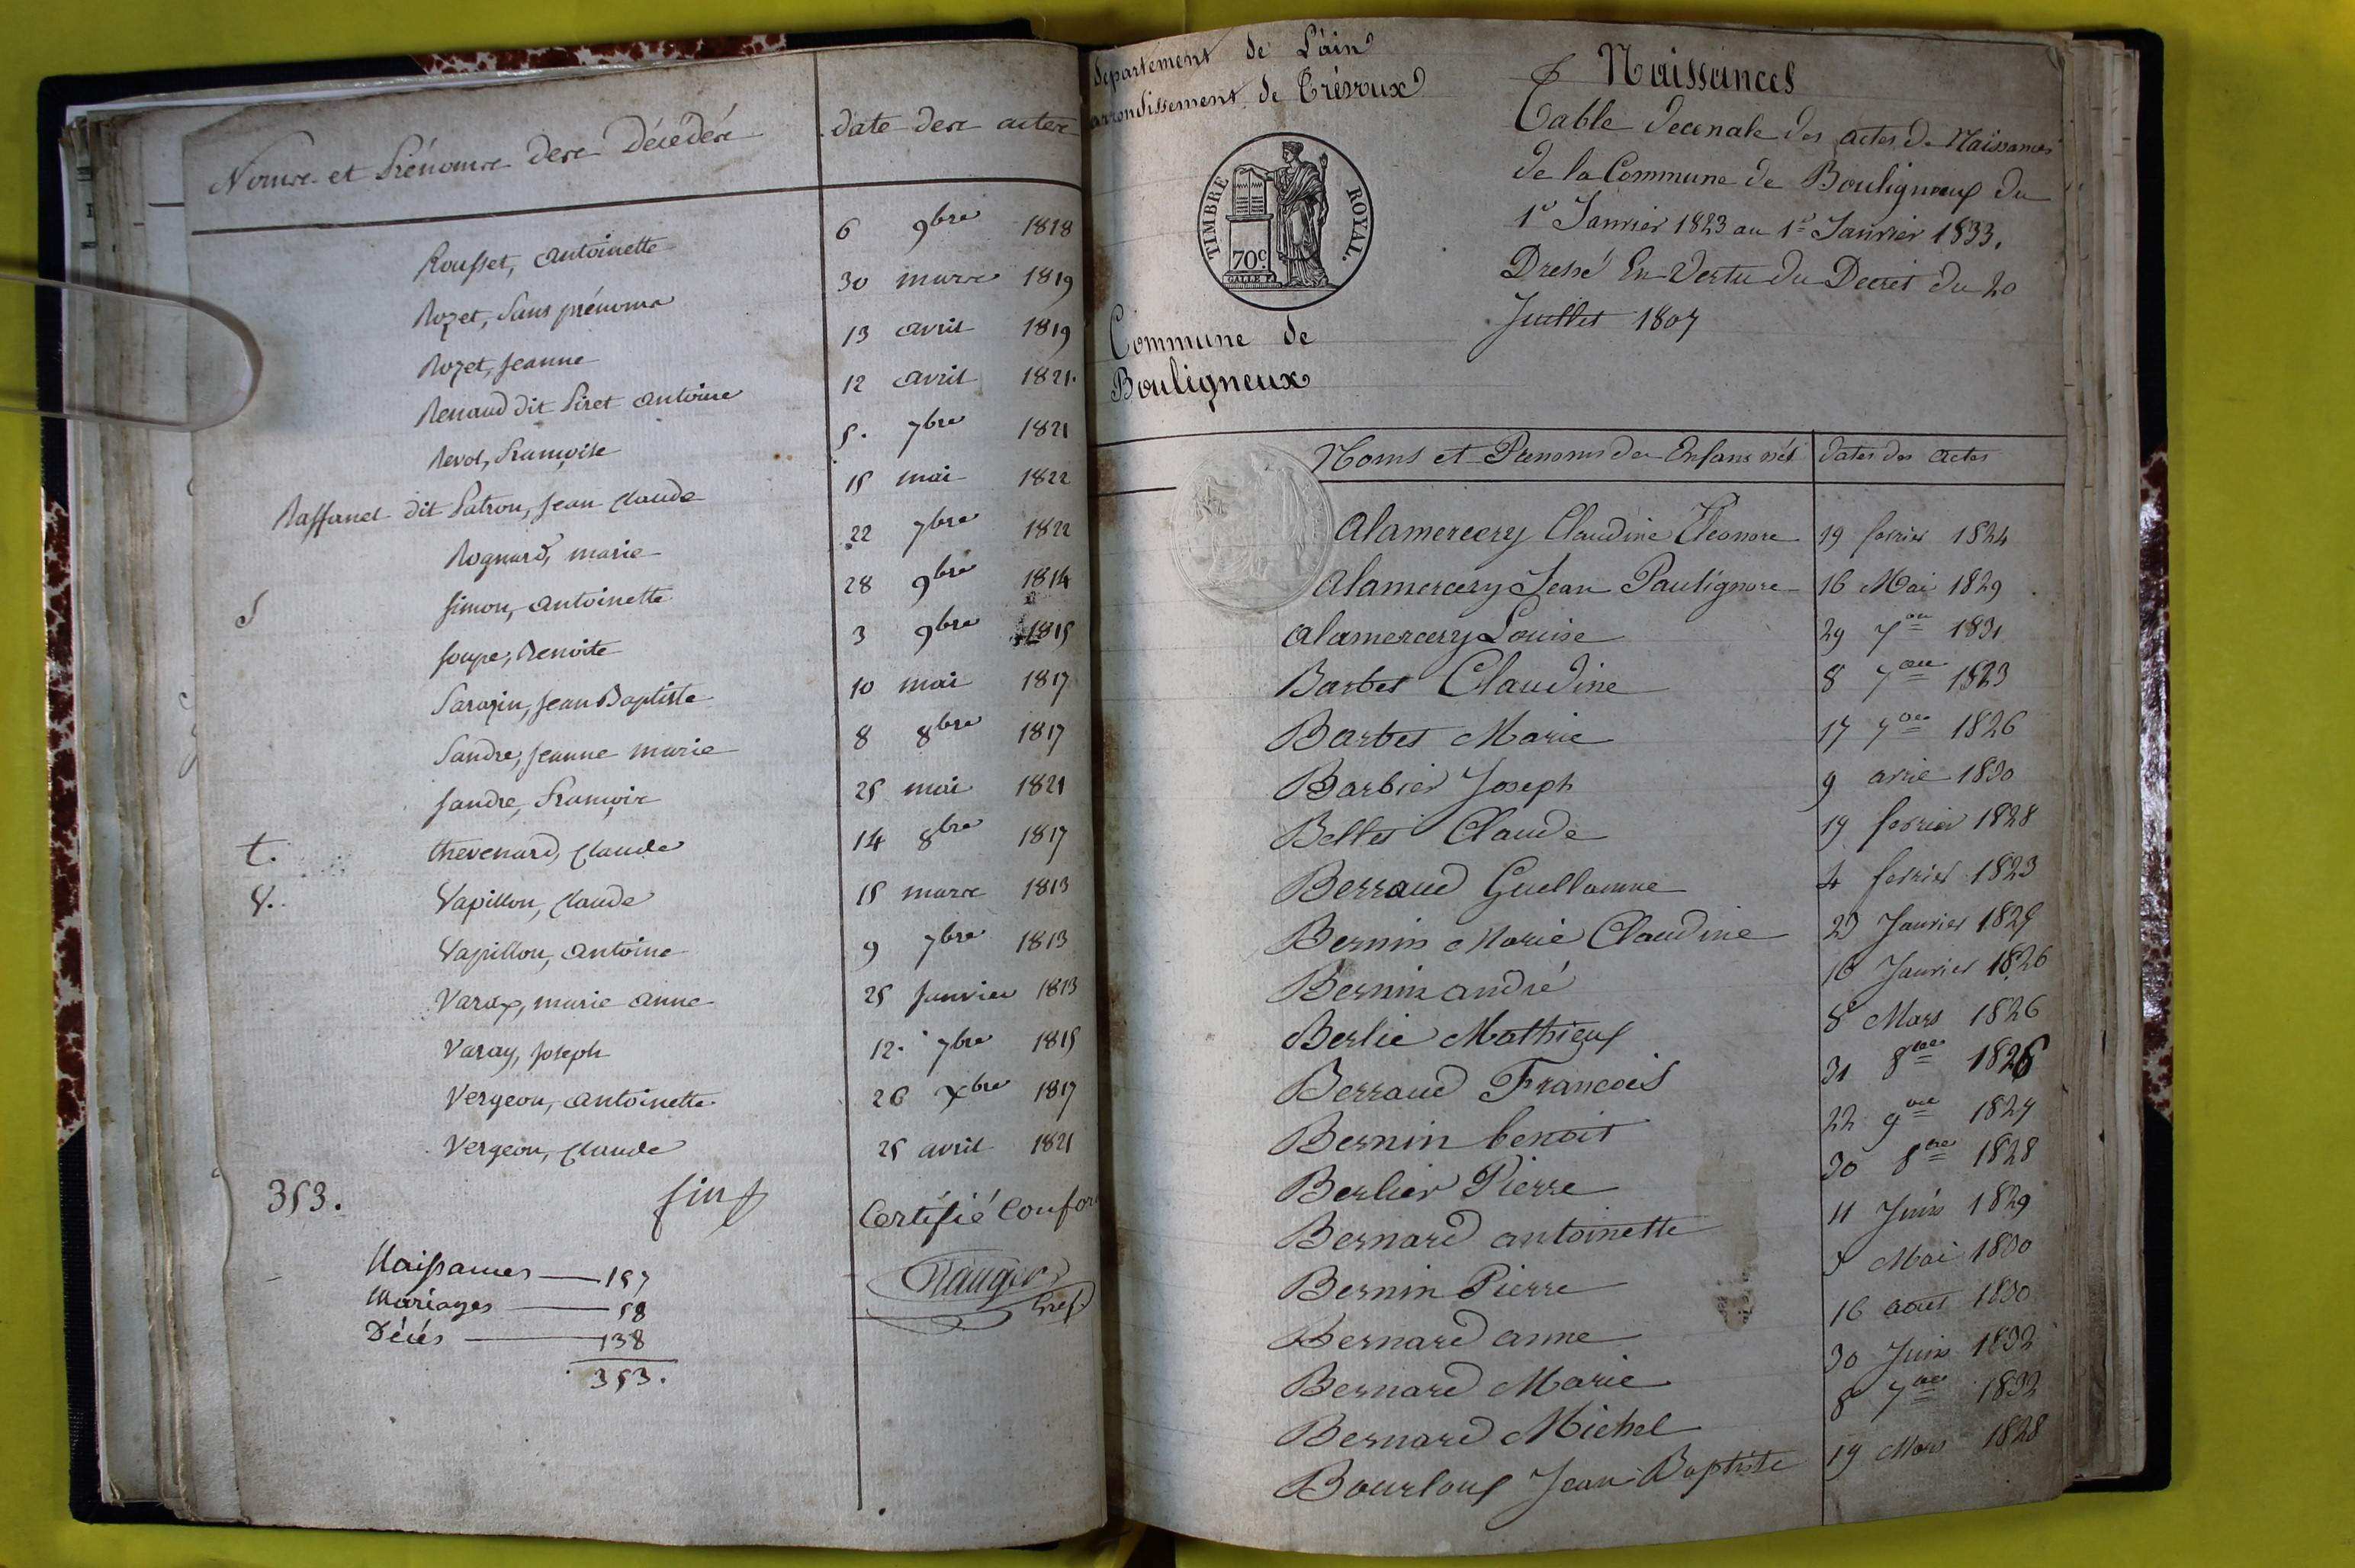 Noms et Prénoms des Décédés date des actes
Rousset, antoinette 6 9bre 1818
Rozet, sans prénoms 30 mars 1819
Rozet, jeanne 13 avril 1819
Renaud dit Piret antoine 12 avril 1821.
Revol, françoise 5. 7bre 1821
Raffanel dit Patron, jean claude 15 mai 1822
Rognard, marie 22 7bre 1822
S Simon, antoinette 28 9bre 1814
Soupe, Benoite 3 9bre 1815
Sarazin, jean Baptiste 10 mai 1817
Sandre, jeanne marie 8 8bre 1817
Sandre, françois 25 mai 1821
t. thevenard, claude 14 8bre 1817
V. Vapillon, claude 15 mars 1813
Vapillon, antoine 9 7bre 1813
Varax, marie anne 25 janvier 1813
Varay, joseph 12. 7bre 1815
Vergeon, antoinette 26 Xbre 1817
Vergeon, claude 25 avril 1821
353. fin
Certifié Confor
Naissances — 157
Mariages — 58
Décès — 138
353.
département de L'ain
arrondissement de Trévoux
TIMBRE ROYAL.
70c.
Commune de
Bouligneux
Naissances
Table decenale des actes de Naissances
de la Commune de Bouligneux du
1er Janvier 1823 au 1er Janvier 1833.
Dressé En Vertu du Decret du 20
Juillet 1807
Noms et Prenoms des Enfans nés dates des actes
Alamercery Claudine Eleonore 19 fevrier 1824
Alamercery Jean Paulignore 16 Mai 1829
alamercery Louise 29 7bre 1831
Barbet Claudine 8 7bre 1823
Barbet Marie 17 7bre 1826
Barbier Joseph 9 avril 1830
Bellet Claude 19 fevrier 1828
Berraud Guellaume 4 fevrier 1823
Bernin Marie Claudine 23 Janvier 1825
Bernin andré 16 Janvier 1826
Berlie Mathieux 8 Mars 1826
Berraud Francois 31 8bre 1826
Bernin benoit 22 9bre 1827
Berlier Pierre 30 8bre 1828
Bernard antoinette 11 Juin 1829
Bernin Pierre 5 Mai 1830
Bernard anne 16 aout 1830
Bernard Marie 30 Juin 1832
Bernard Michel 8 7bre 1832
Bourloux Jean Baptiste 19 Mars 1828